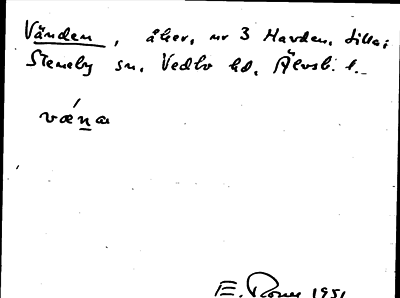 Vänden, åker, nr 3 Havden, Lilla;
Steneby sn. Vedbo hd. Älvsb. l.
væna
E. Roos 1951